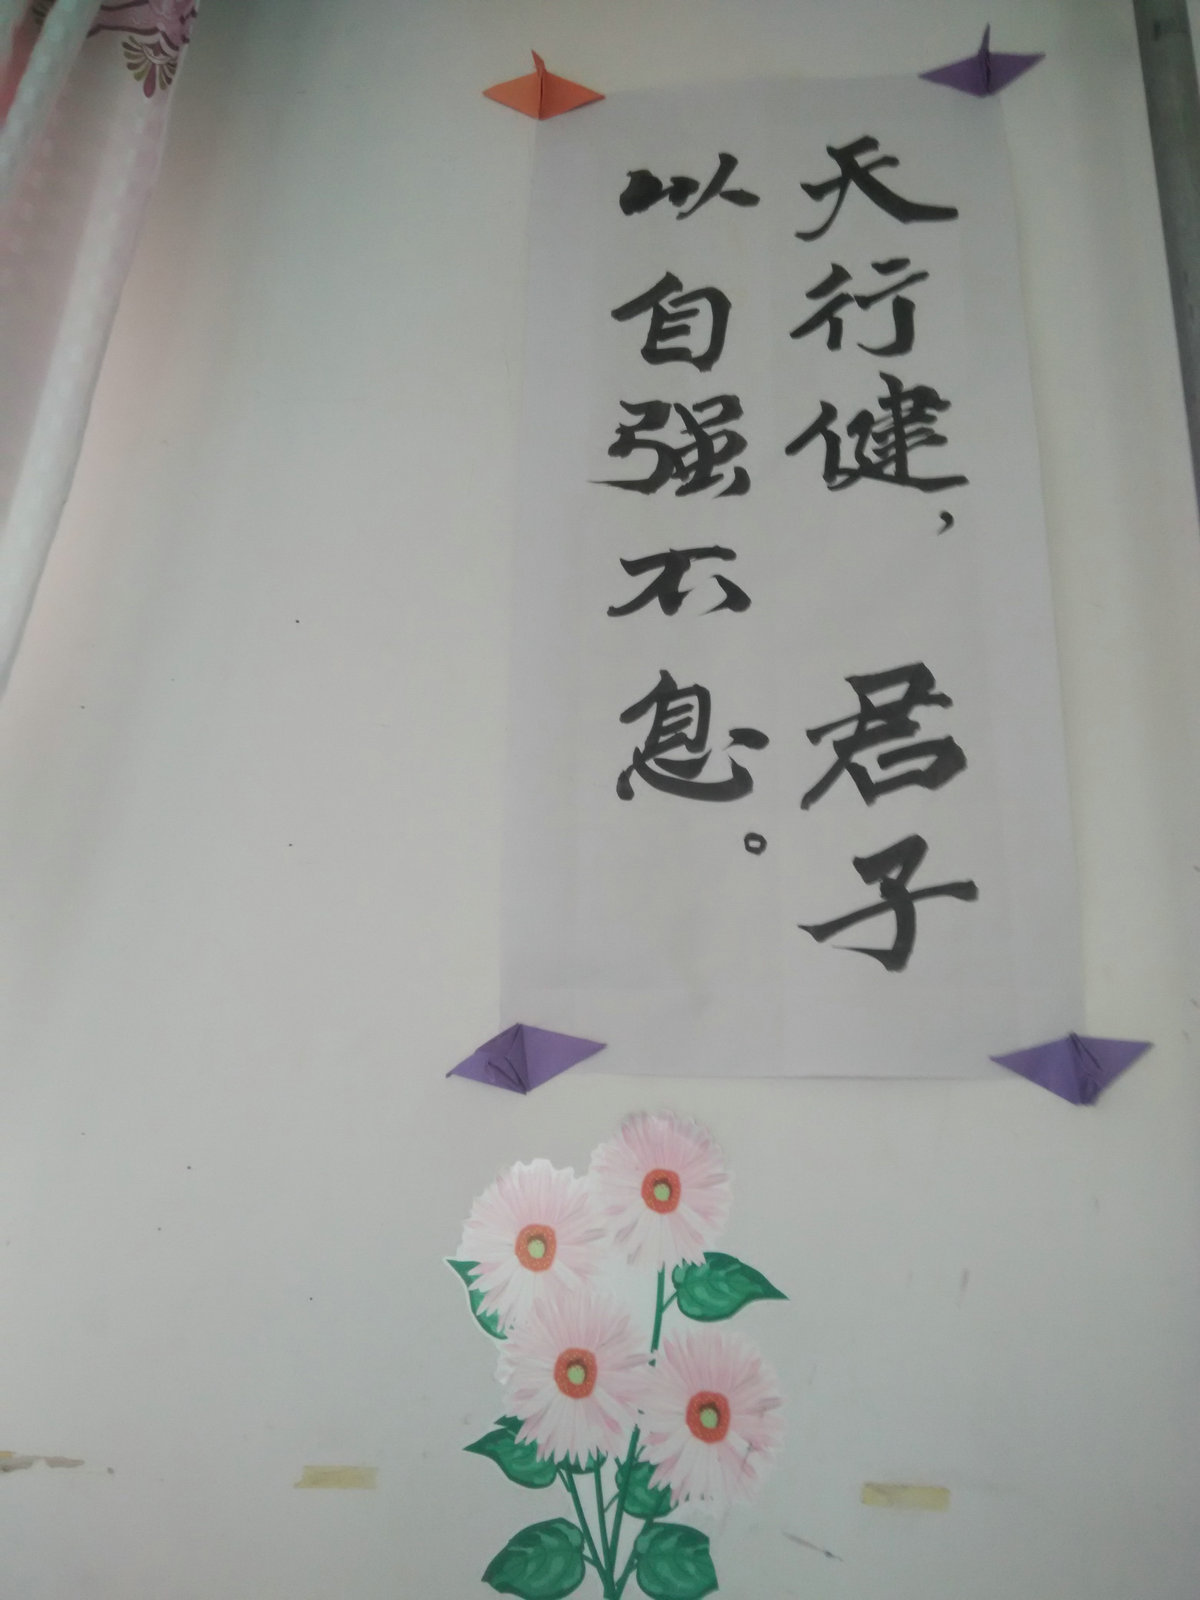 天行健，君子
以自强不息。